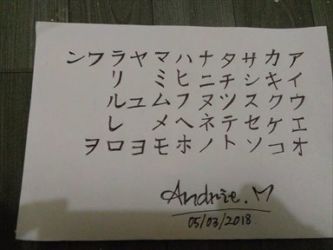 ンワラヤマハナタサカア
リミヒニチシキイ
ルユムフヌツスクウ
レメヘネテセケエ
ヲロヨモホノトソコオ
Andrie.M
05/03/2018